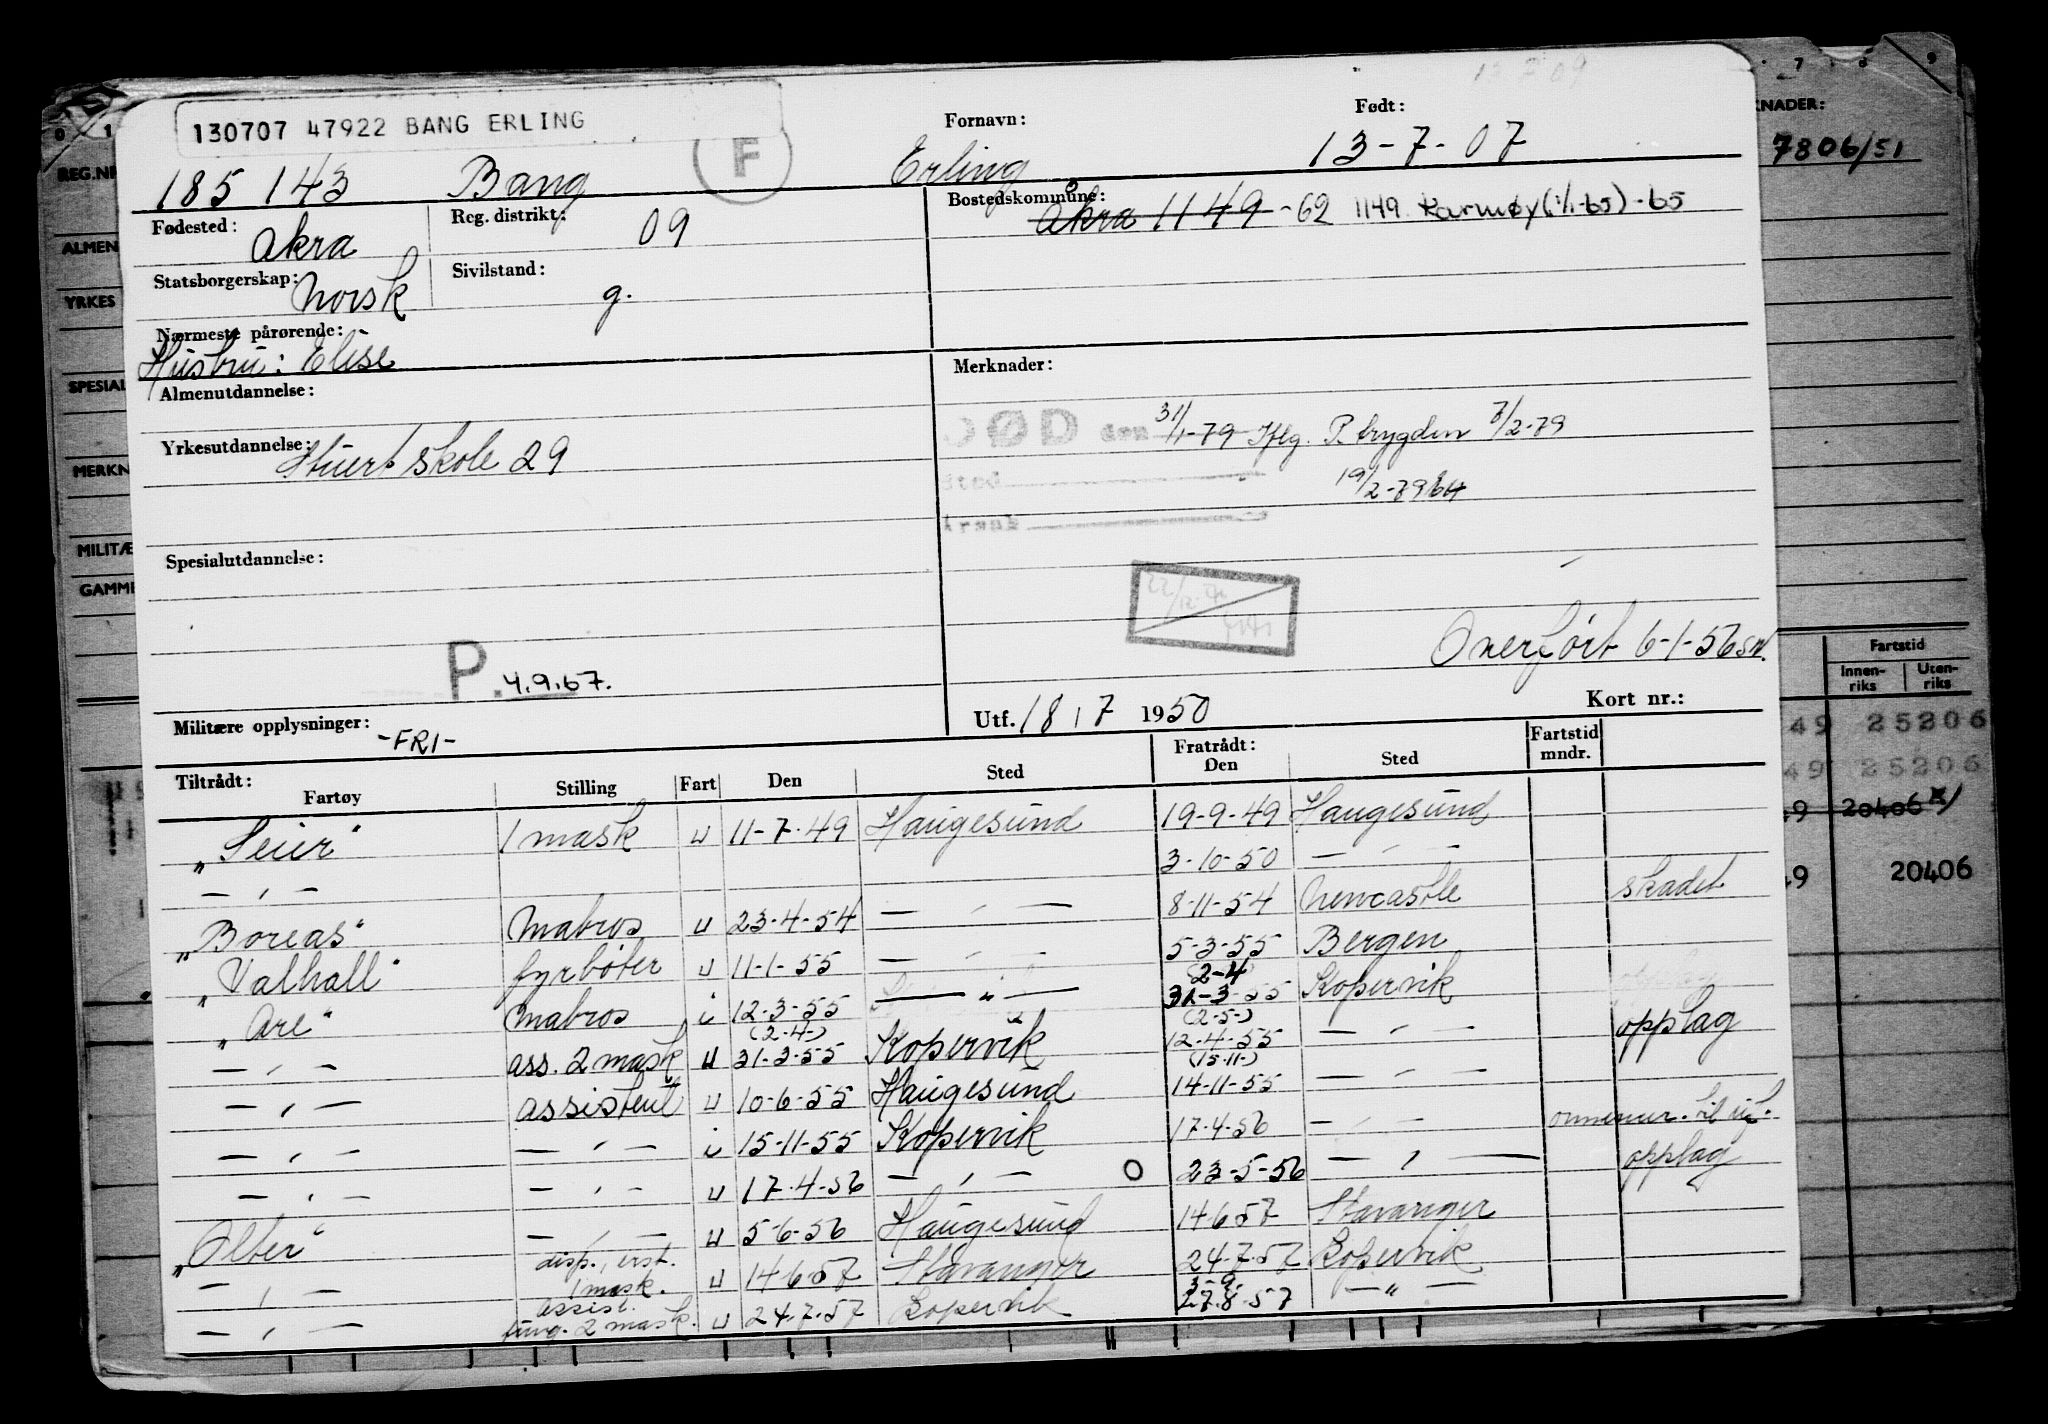 130707 47922 BANG ERLING
F
Fornavn:
Født:
185 143 Bang Erling 13-7-07
Fødested: Akra
Reg. distrikt: 09
Bostedskommune: Åkra 1149 -62 1149 Karmøy (1/1-65) -65
Statsborgerskap: Norsk
Sivilstand: g.
Nærmeste pårørende:
Hustru: Elise
Almenutdannelse:
Merknader:
DØD den 31/1-79 Iflg. P. trygden 7/2-79
Yrkesutdannelse: Stuertskole 29
Sted
19/2-79
Årsak
Spesialutdannelse:
Overført 6-1-56
P. 4.9.67.
Militære opplysninger: -FRI-
Utf. 18 / 7 1950
Kort nr.:
Tiltrådt:
Fratrådt:
Fartøy Stilling Fart Den Sted Den Sted Fartstid mndr.
"Seier" 1 mask u 11-7-49 Haugesund 19-9-49 Haugesund
— " — 3-10-50 — " —
"Boreas" Matros u 23-4-54 — " — 8-11-54 Newcastle skadet
"Valhall" fyrbøter u 11-1-55 — " — 5-3-55 Bergen
"Are" Matros i 12-3-55 — " — (2-4) 31-3-55 Kopervik
— " — ass. 2 mask u (2-4-) 31-3-55 Kopervik (2-5-) 12-4-55 — " — opplag
— " — assistent u 10-6-55 Haugesund (15-11-) 14-11-55 — " —
— " — — " — i 15-11-55 Kopervik 17-4-56 — " —
— " — — " — u 17-4-56 — " — O 23-5-56 — " — opplag
"Olter" — " — u 5-6-56 Haugesund 14-6-57 Stavanger
— " — disp. 1 mask. u 14-6-57 Stavanger 24-7-57 Kopervik
— " — assist. fung. 2 mask. u 24-7-57 Kopervik 3-9- 27-8-57 — " —
REG.NR
ALMEN
YRKES
SPESIAL
MERKN
MILITÆ
GAMME
NADER:
7806/51
Fartstid
Innen-riks
Uten-riks
49 25206
49 25206
49 20406 X)
49 20406